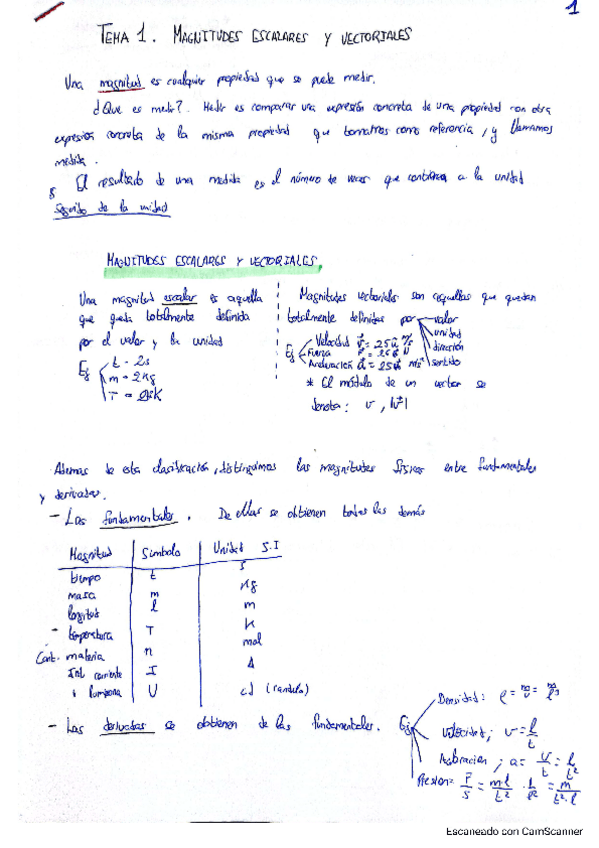 1
TEMA 1. MAGNITUDES ESCALARES Y VECTORIALES
Una magnitud es cualquier propiedad que se puede medir.
¿Que es medir?. Medir es comparar una expresión concreta de una propiedad con otra
expresión concreta de la misma propiedad que tomamos como referencia, y llamamos
medida.
El resultado de una medida es el número de veces que contiene a la unidad
seguido de la unidad
MAGNITUDES ESCALARES Y VECTORIALES.
Una magnitud escalar es aquella
que queda totalmente definida
por el valor y la unidad
Ej
t = 2s
m = 2Kg
T =
Magnitudes vectoriales son aquellas que quedan
totalmente definidas por
valor
unidad
dirección
sentido
Ej
Velocidad
Fuerza
Aceleración
* El módulo de un vector se
denota: v, |v⃗|
Ademas de esta clasificación, distinguimos las magnitudes físicas entre fundamentales
y derivadas.
- Las fundamentales. De ellas se obtienen todas las demás
Magnitud Simbolo Unidad S.I
tiempo t s
masa m Kg
longitud l m
- temperatura T K
Cant. materia n mol
Int. corriente I A
luminosa U cd (candela)
- Las derivadas se obtienen de las fundamentales. Ej
Densidad: ρ = m/v = m/l³
Velocidad; v = l/t
Aceleracion; a = v/t = l/t²
Presion = F/S = m·l/t² · 1/l² = m/t²·l
Escaneado con CamScanner